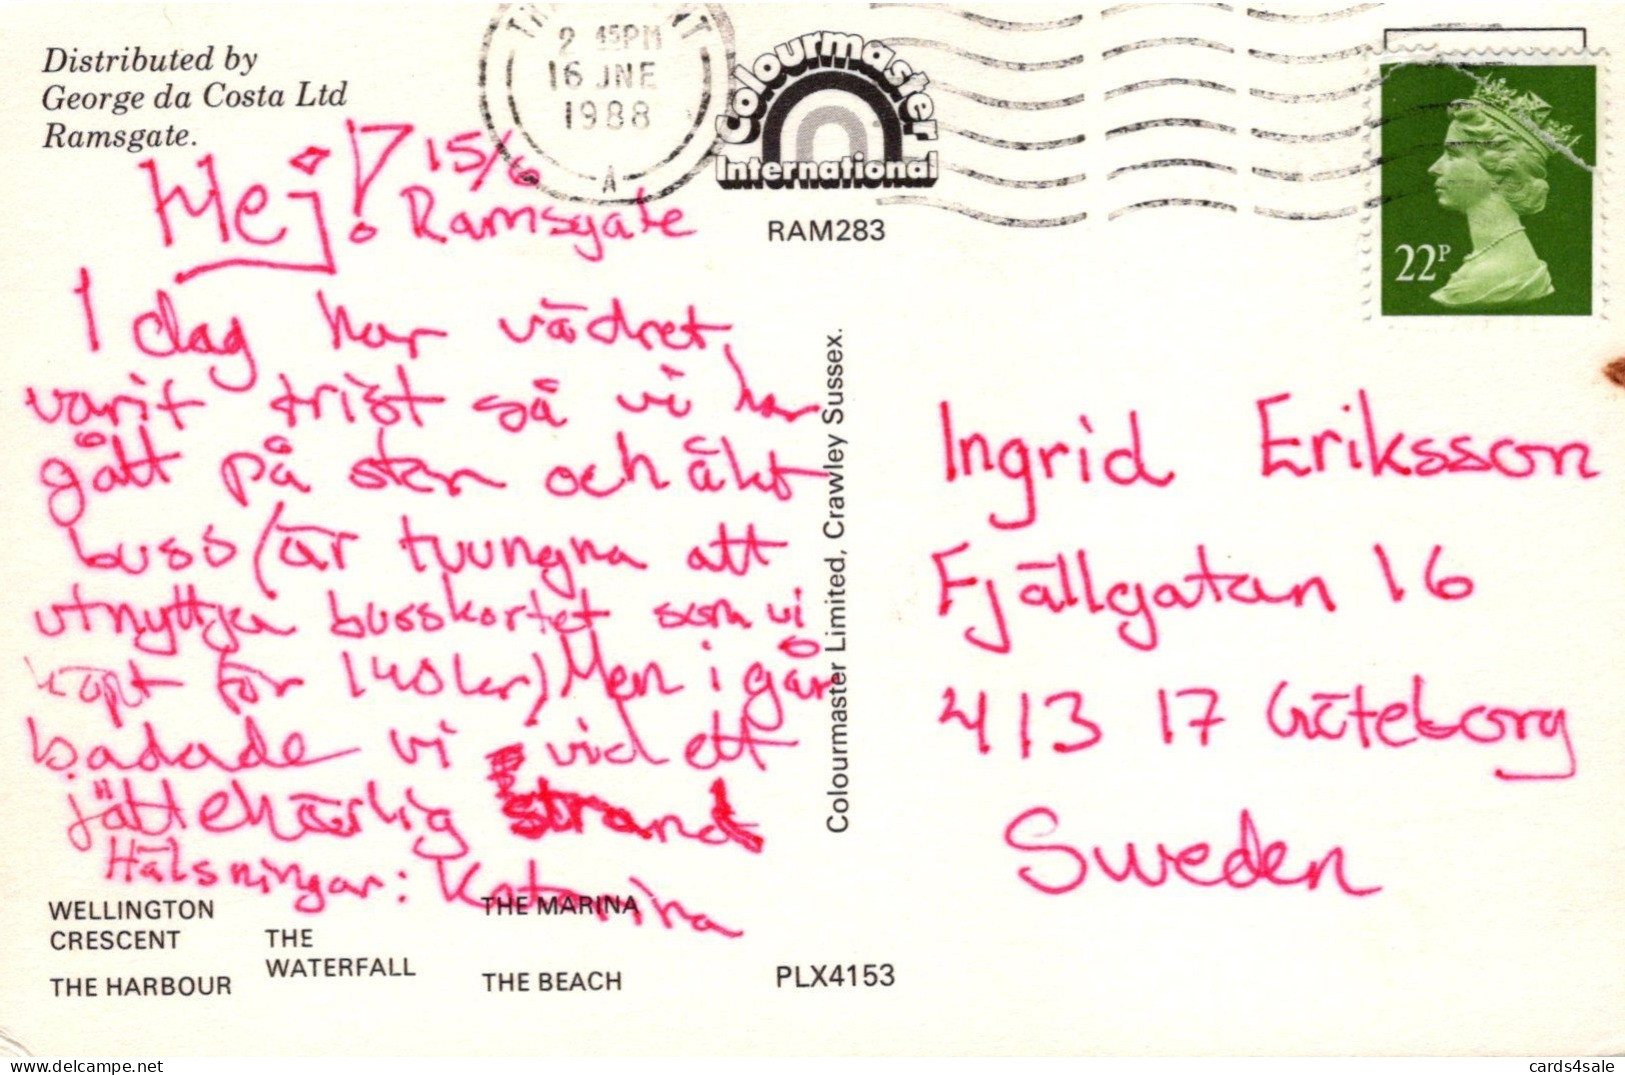 Distributed by
George da Costa Ltd
Ramsgate.
2 45PM
16 JNE
1988
A
Colourmaster
International
RAM283
22P
Hej! 15/6
Ramsgate
I dag har vädret
varit trist så vi har
gått på stan och åkt
buss (är tvungna att
utnyttja busskortet som vi
köpt för 140 kr) Men i går
badade vi vid ett
jättehärlig strand
Hälsningar: Katarina
Colourmaster Limited, Crawley Sussex.
Ingrid Eriksson
Fjällgatan 16
413 17 Göteborg
Sweden
WELLINGTON
CRESCENT
THE HARBOUR
THE
WATERFALL
THE MARINA
THE BEACH
PLX4153
https://www.delcampe.net
cards4sale